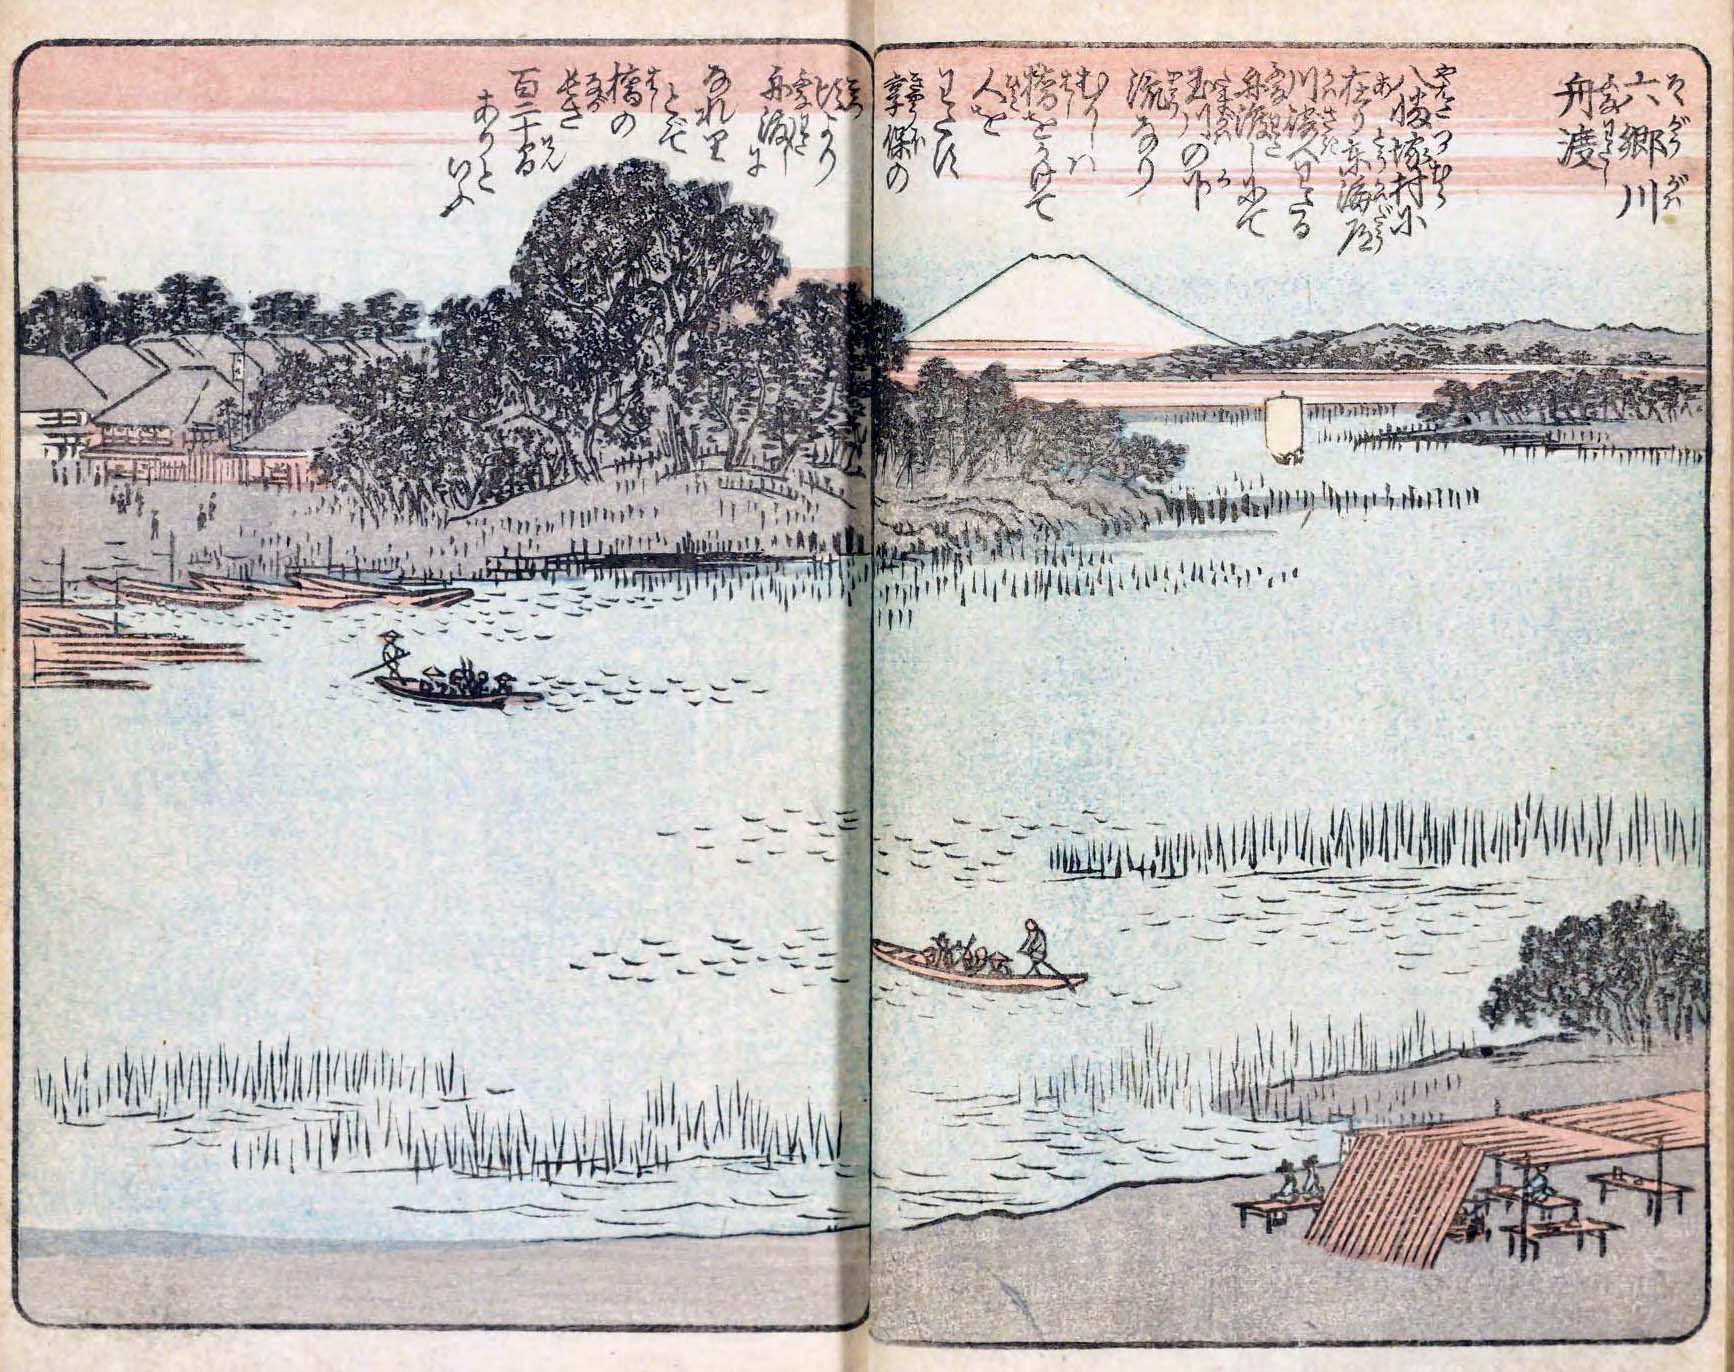 六郷川
舟渡
八幡塚村に
在り東海道
わたる
舟渡しにて
玉川の下
流なり
むかしハ
橋をかけて
人を
わたす
享保の
頃より
舟渡しに
なれり
とぞ
橋の
長さ
百二十間
ありと
いふ